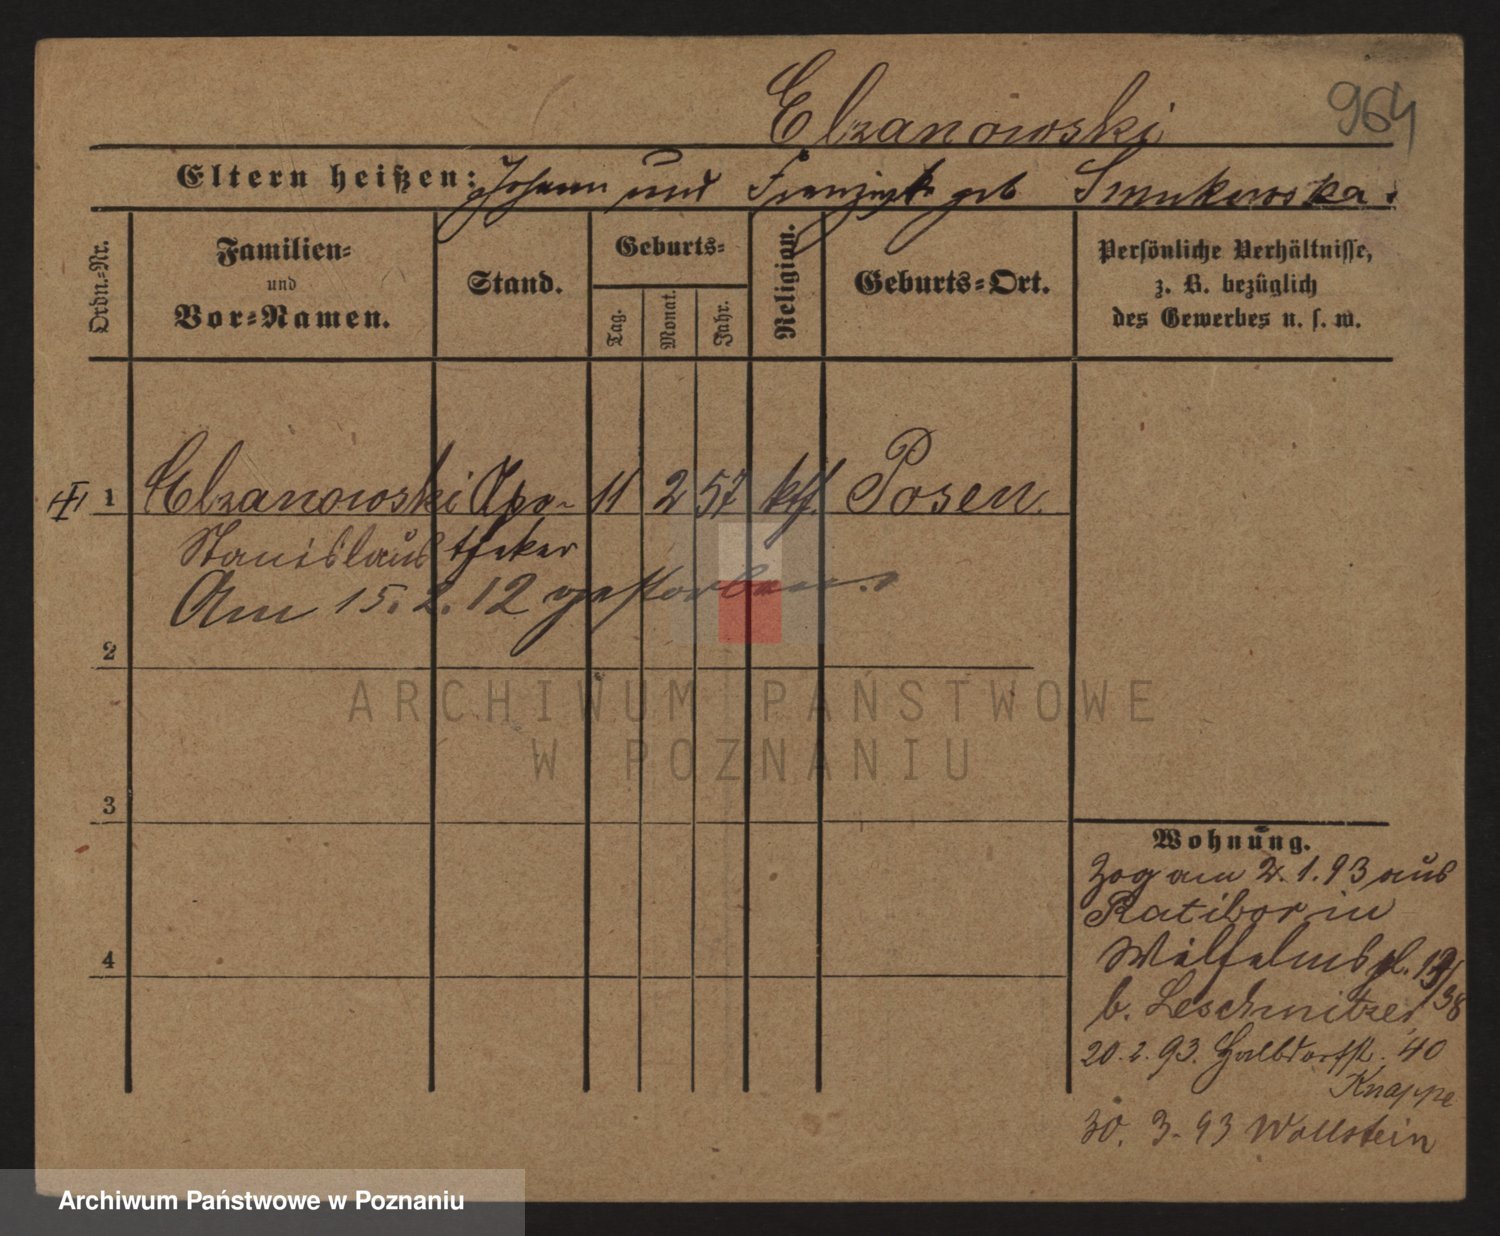 Elzanowski
964
Eltern heißen: Johann und Franziska geb Smukowska.
Ordn.-Nr.
Familien-
und
Vor-Namen.
Stand.
Geburts-
Tag.
Monat.
Jahr.
Religion.
Geburts-Ort.
Persönliche Verhältnisse,
z. B. bezüglich
des Gewerbes u. s. w.
1 Elzanowski Apo- 11 2 57 kth. Posen.
Stanislaus theker
Am 15. 2. 12 gestorben.
2
3
4
Wohnung.
Zog am 2. 1. 93 aus
Ratibor in
Wilhelmspl.
b. Leschnitzer
20. 2. 93. Halbdorfstr. 40
Knappe
30. 3. 93 Wollstein
ARCHIWUM PAŃSTWOWE
W POZNANIU
Archiwum Państwowe w Poznaniu